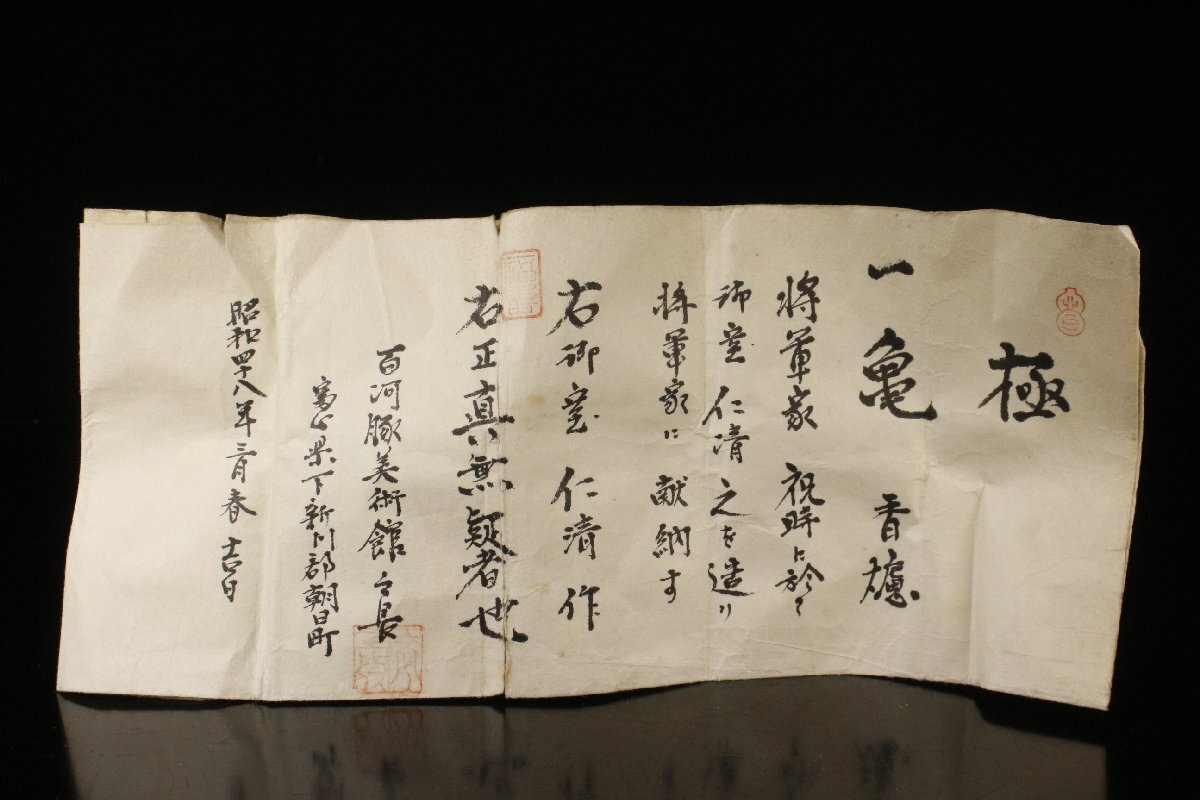 極
一 亀 香爐
将軍家 祝時に於て
御室 仁清 之を造り
将軍家に 献納す
右御室 仁清 作
右正真無疑者也
百河豚美術館 館長
富山県下新川郡朝日町
昭和四十八年三月春 吉日